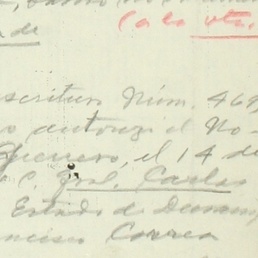 (a la vta.
de
scritura Núm. 469
autorizó el No-
Guerrero, el 14 de
C. Gral. Carlos
Estado de Durang
ncisco Correa